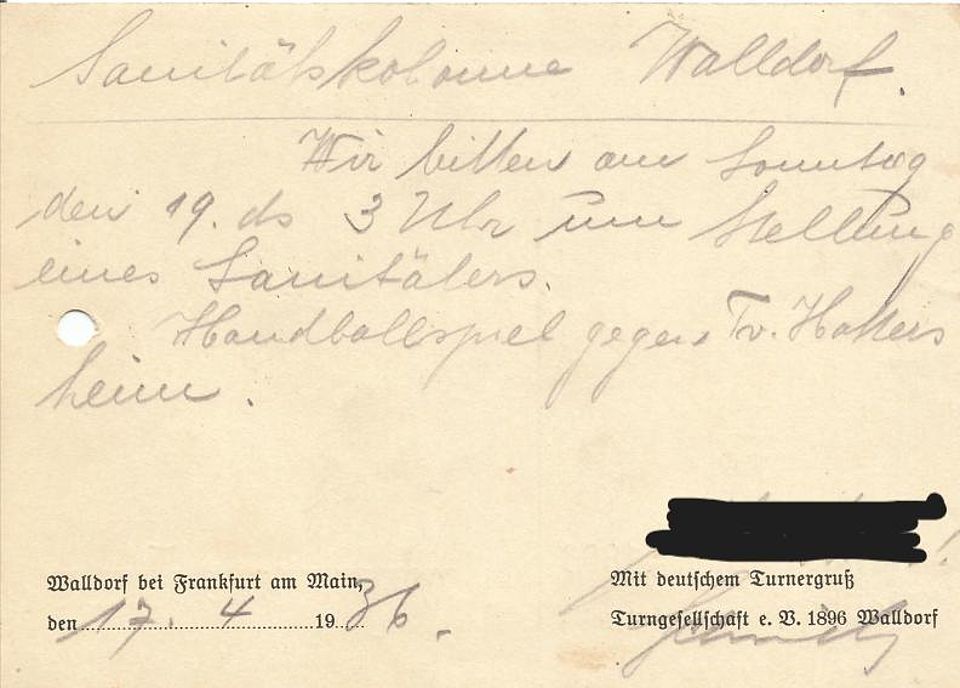 Sanitätskolonne Walldorf.
Wir bitten am Sonntag
den 19. ds 3 Uhr um Stellung
eines Sanitäters.
Handballspiel gegen Tv. Hatters
heim.
Walldorf bei Frankfurt am Main,
den 17. 4 1936.
Mit deutschem Turnergruß
Turngesellschaft e. V. 1896 Walldorf